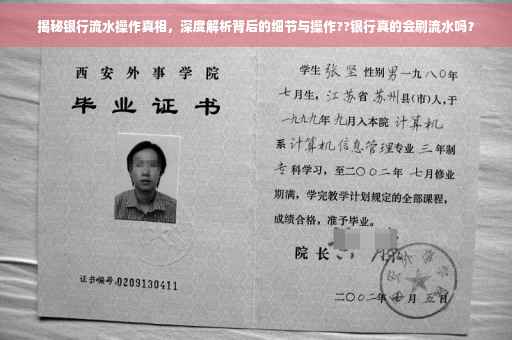 揭秘银行流水操作真相，深度解析背后的细节与操作??银行真的会刷流水吗?
西安外事学院
毕业证书
证书编号:0209130411
学生 张坚 性别 男 一九八〇年
七月生，江苏省 苏州县(市)人,于
一九九九年 九月入本院 计算机
系 计算机信息管理专业 三 年制
专 科学习，至二〇〇二年 七月修业
期满，学完教学计划规定的全部课程，
成绩合格，准予毕业。
院长
二〇〇二年 月 五日